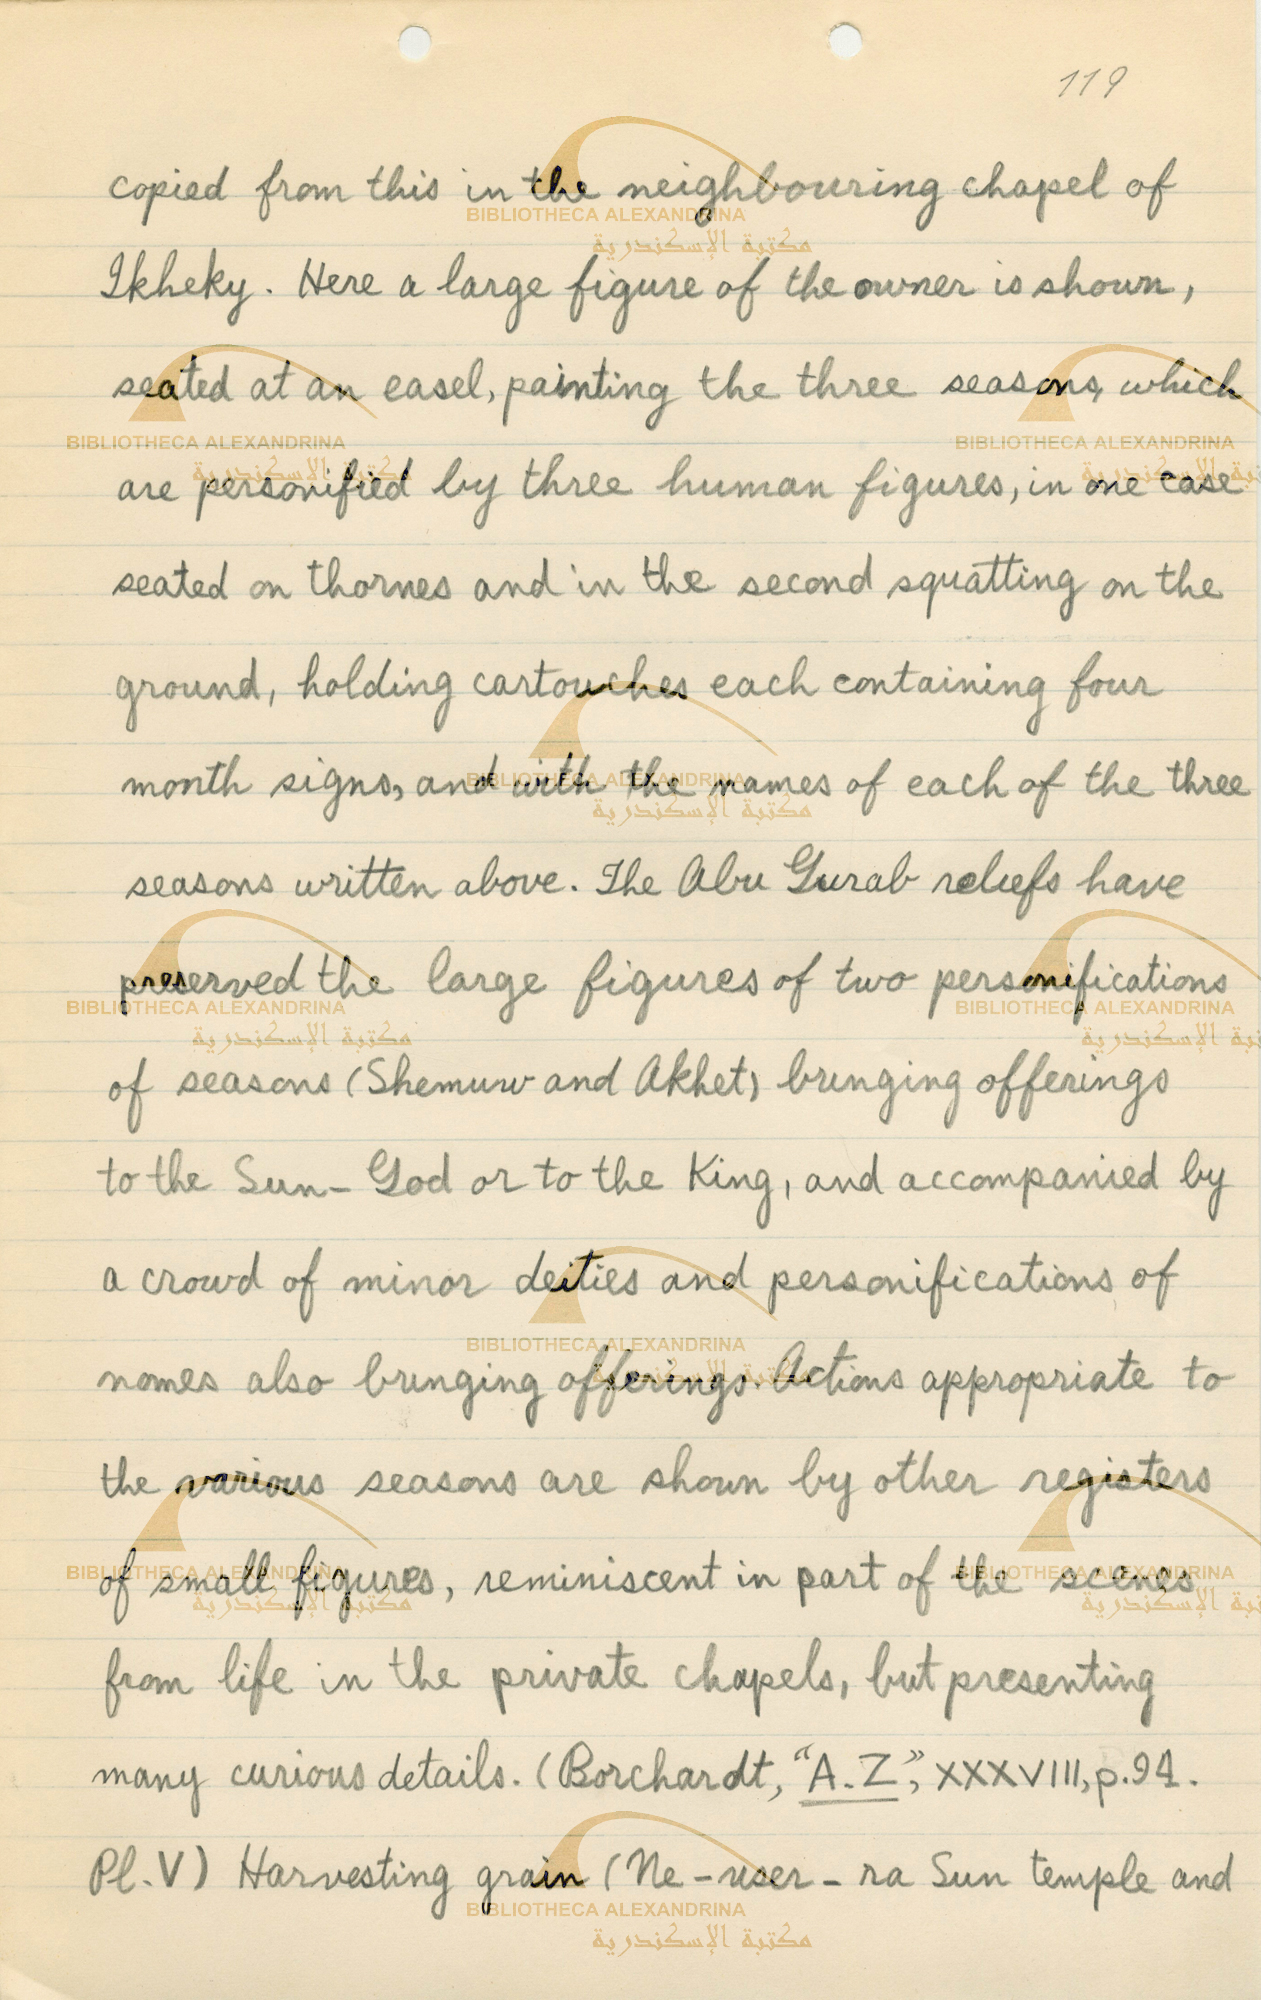 119
copied from this in the neighbouring chapel of
Ikheky. Here a large figure of the owner is shown,
seated at an easel, painting the three seasons, which
are personified by three human figures, in one case
seated on thornes and in the second squatting on the
ground, holding cartouches each containing four
month signs, and with the names of each of the three
seasons written above. The Abu Gurab reliefs have
preserved the large figures of two personifications
of seasons (Shemuw and Akhet) bringing offerings
to the Sun-God or to the King, and accompanied by
a crowd of minor deities and personifications of
nomes also bringing offerings. Actions appropriate to
the various seasons are shown by other registers
of small figures, reminiscent in part of the scenes
from life in the private chapels, but presenting
many curious details. (Borchardt, "A.Z", XXXVIII, p.94.
Pl.V) Harvesting grain (Ne-user-ra Sun temple and
BIBLIOTHECA ALEXANDRINA
مكتبة الإسكندرية